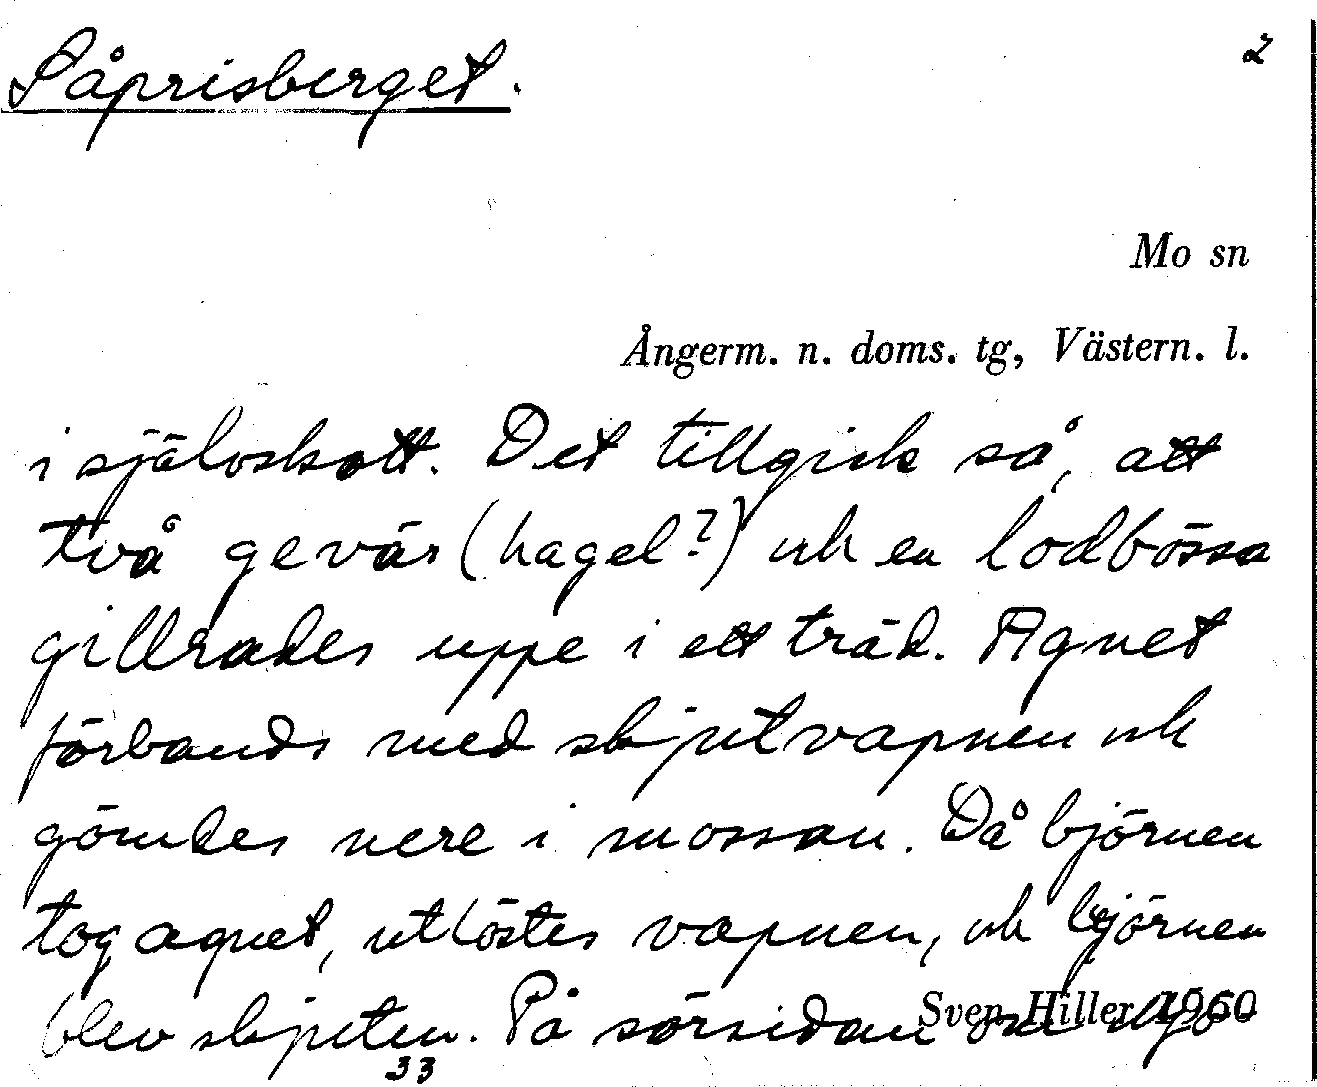 Såprisberget.
2
Mo sn
Ångerm. n. doms. tg, Västern. l.
i självskott. Det tillgick så, att
två gevär (hagel?) och en lodbössa
gillrades uppe i ett träd. Agnet
förbands med skjutvapnen och
gömdes nere i mossan. Då björnen
tog agnet, utlöstes vapnen, och björnen
blev skjuten. På sörsidan om
Sven Hiller 1960
33